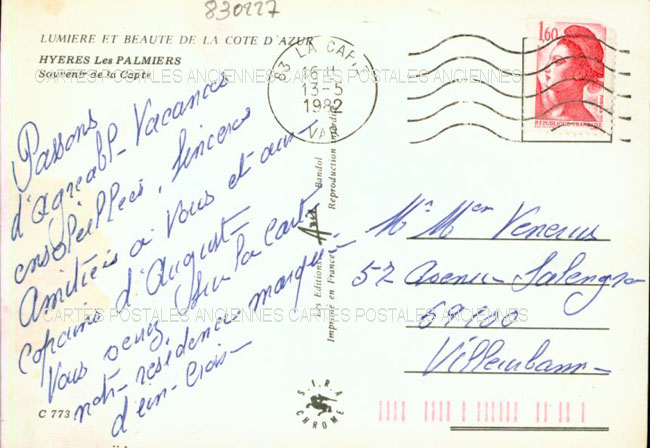 830227
LUMIERE ET BEAUTE DE LA COTE D'AZUR
HYERES Les PALMIERS
Souvenir de la Capte
83 LA CAPTE
16 H
13-5
1982
VAR
1,60
REPUBLIQUE FRANCAISE
CARTES POSTALES ANCIENNES CARTES POSTALES ANCIENNES
Passons
d'agreabl- Vacances
ensoleillées. Sinceres
Amitiées a Vous et aux
copains d'August-
Vous verrez Sur la Cart-
notr- residence marquée
d'un- Croix-
Les Editions Aris Bandol
Imprimé en France Reproduction interdite
Mr Mer
52 Avenue Salengro
69100
Villeurbann-
CARTES POSTALES ANCIENNES CARTES POSTALES ANCIENNES
C 773
S.I.R.A.
CHROME